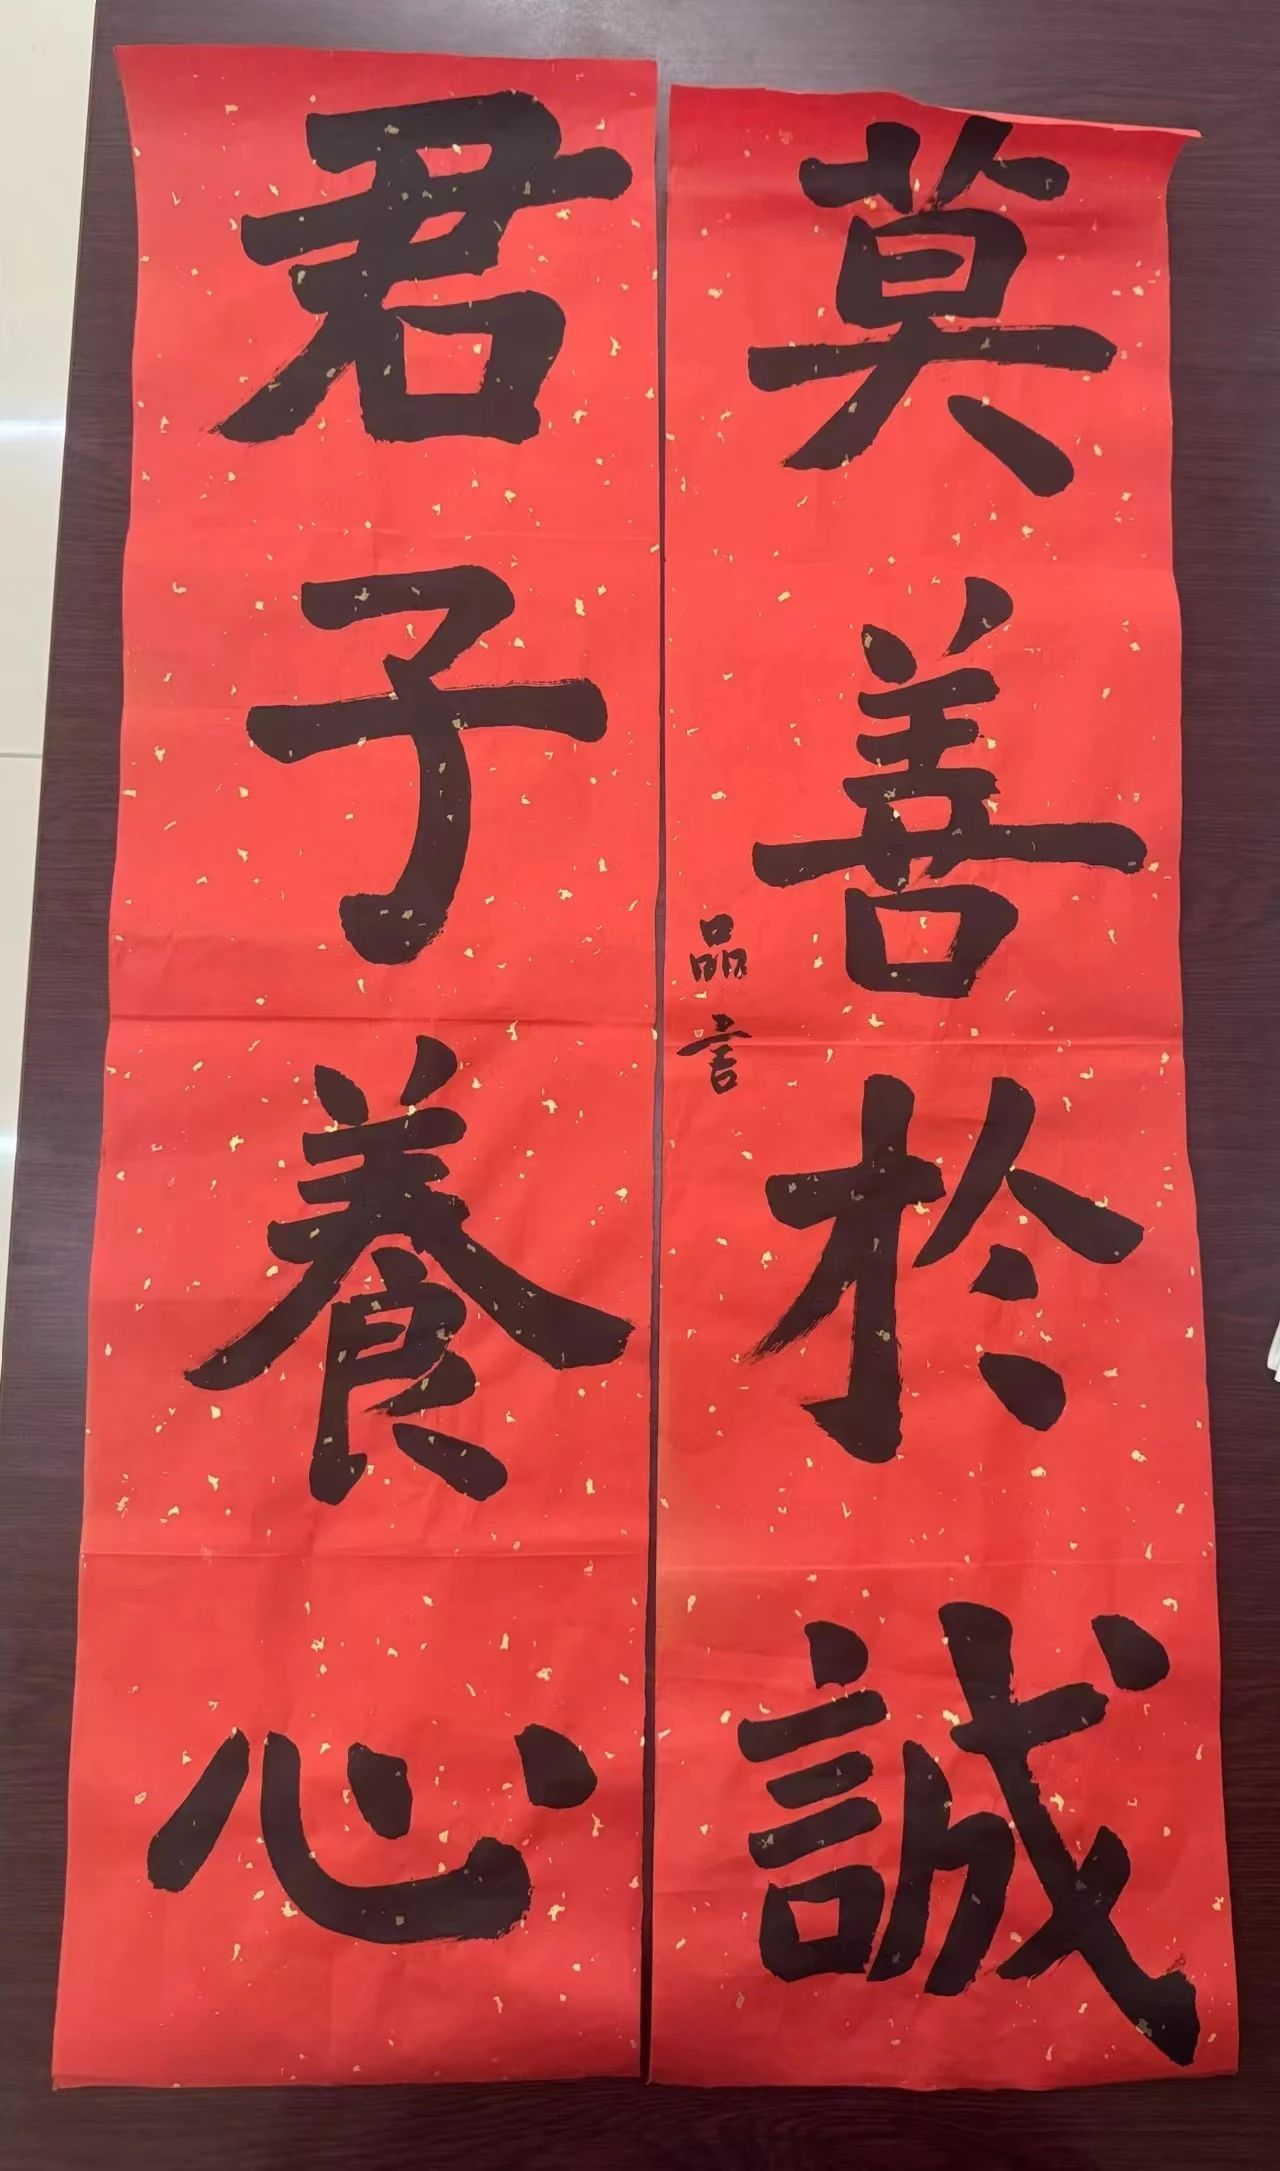 君子養心
莫善於誠
品言